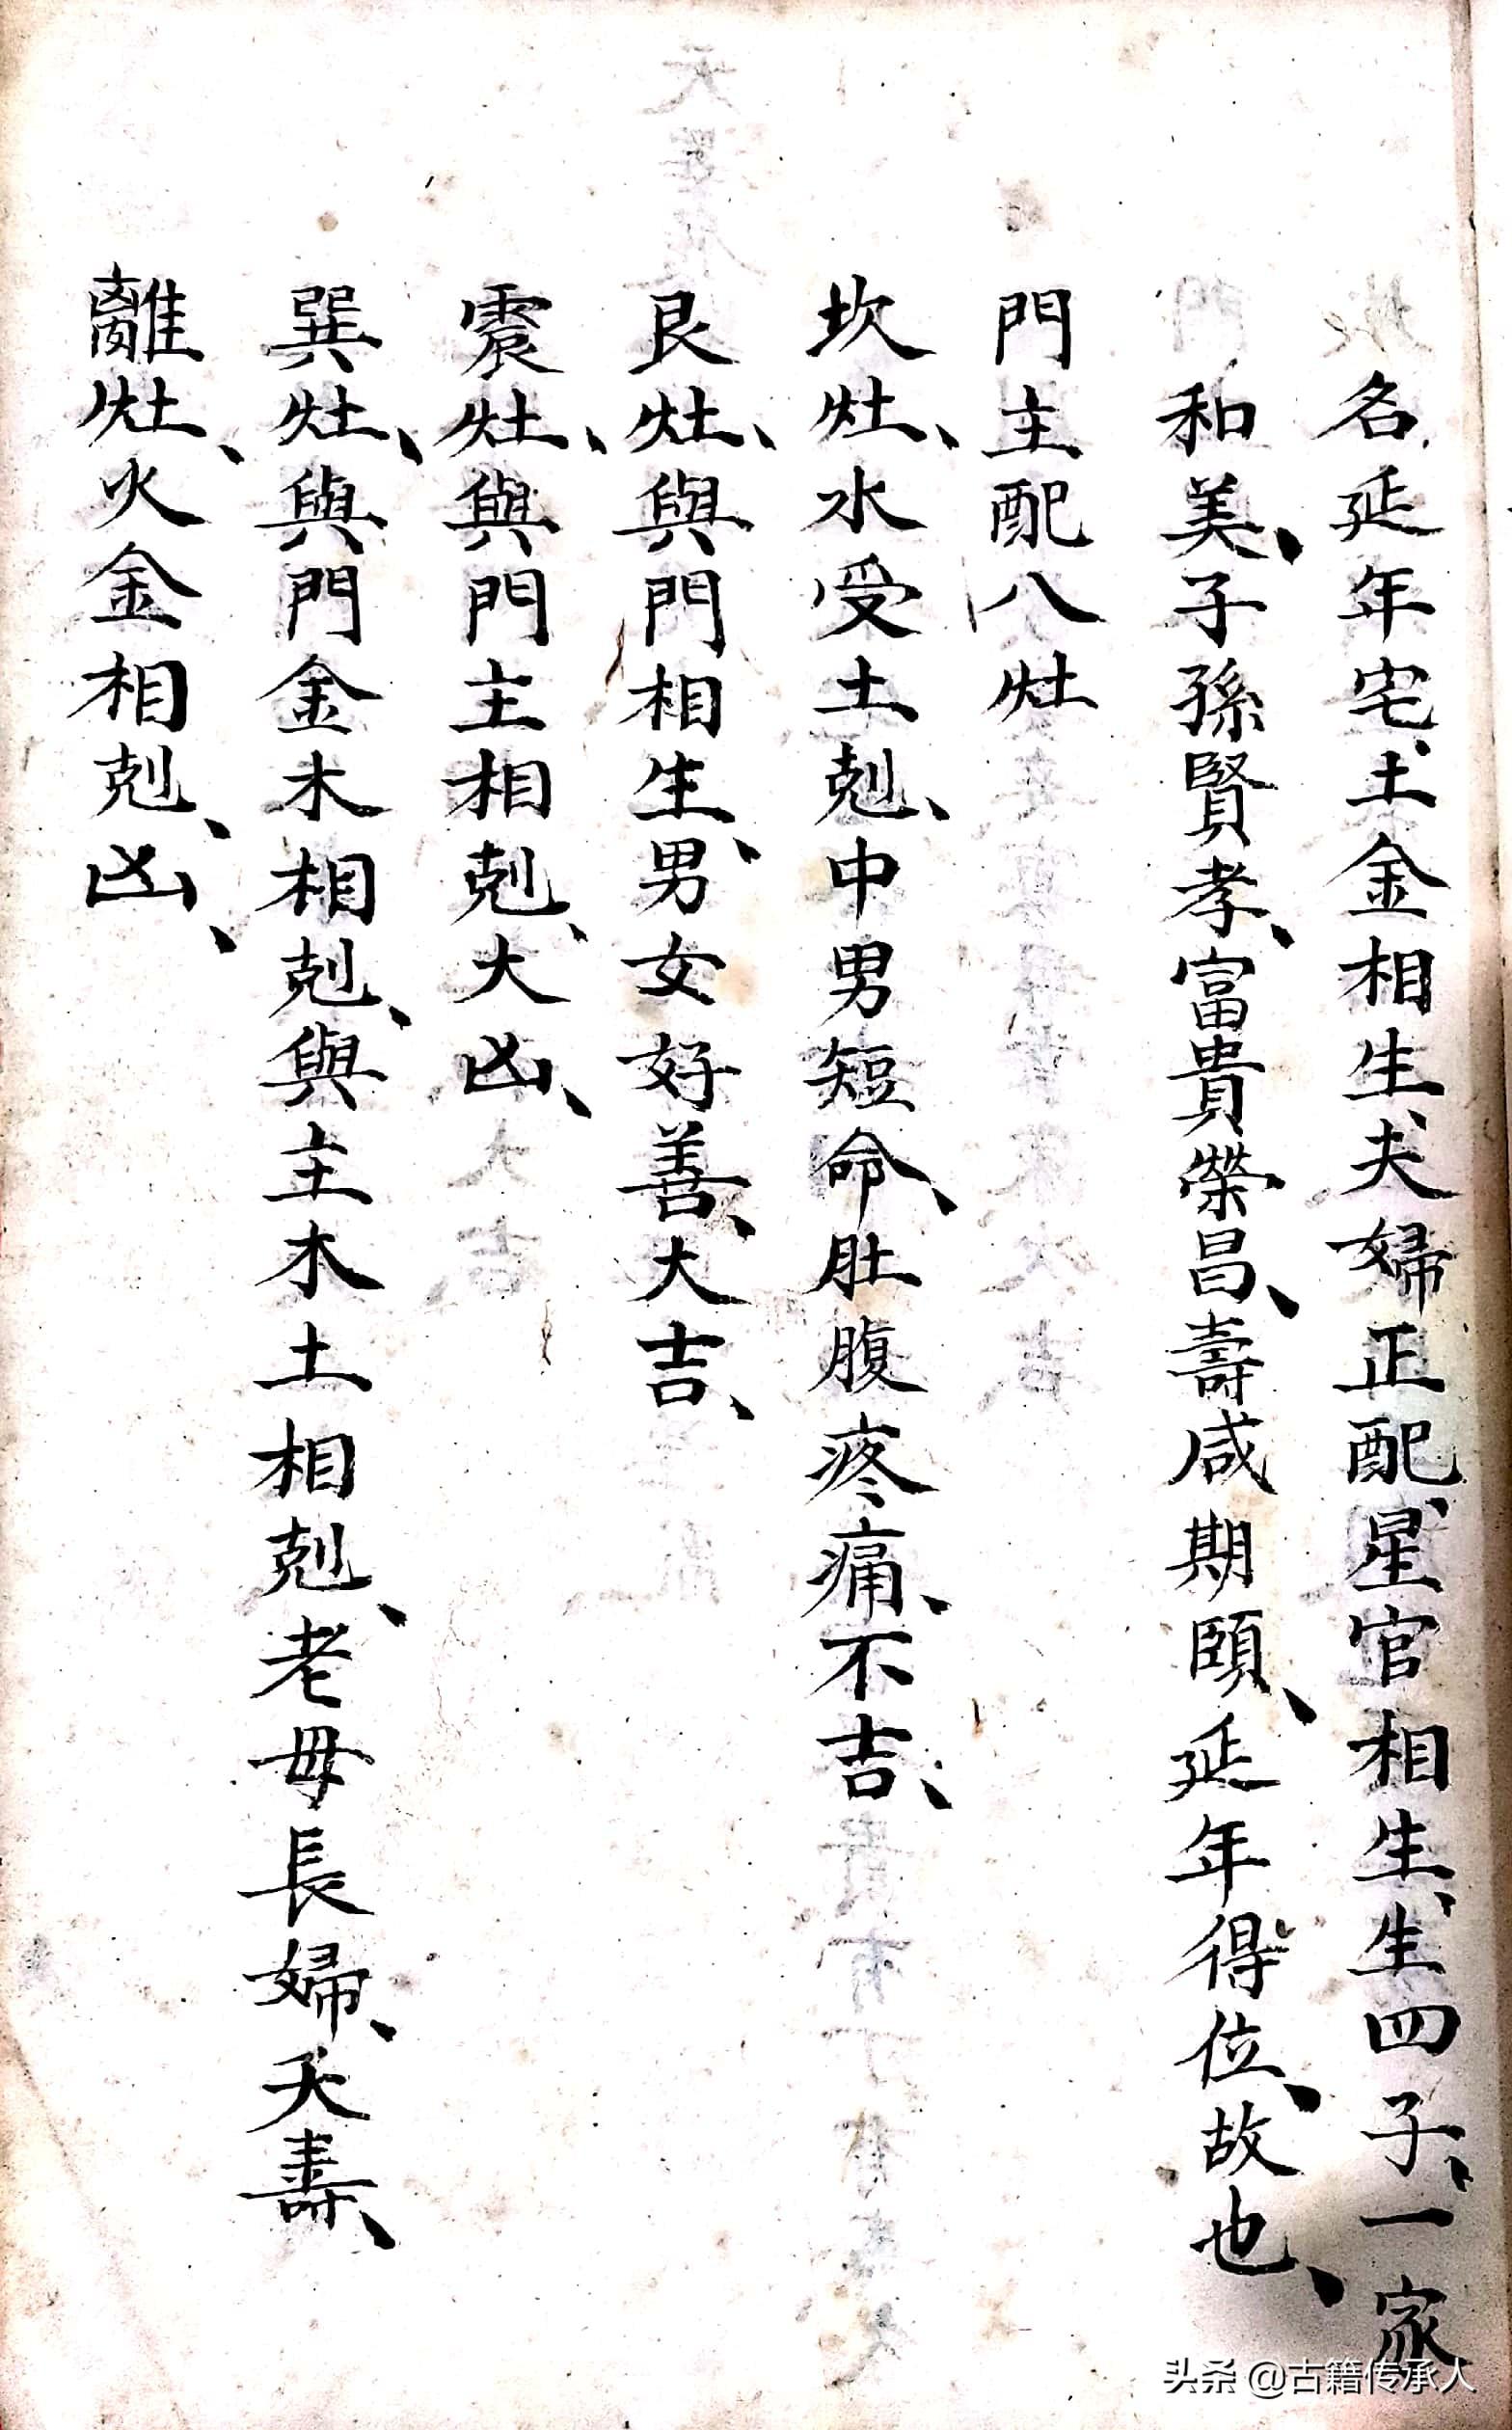 名延年宅、土金相生、夫婦正配、星官相生、生四子、一家
和美、子孫賢孝、富貴榮昌、壽咸期頤、延年得位、故也、
門主配八灶
坎灶、水受土剋、中男短命、肚腹疼痛、不吉、
艮灶、與門相生、男女好善、大吉、
震灶、與門主相剋、大凶、
巽灶、與門金木相剋、與主木土相剋、老母長婦、夭壽、
離灶、火金相剋、凶、
头条 @古籍传承人